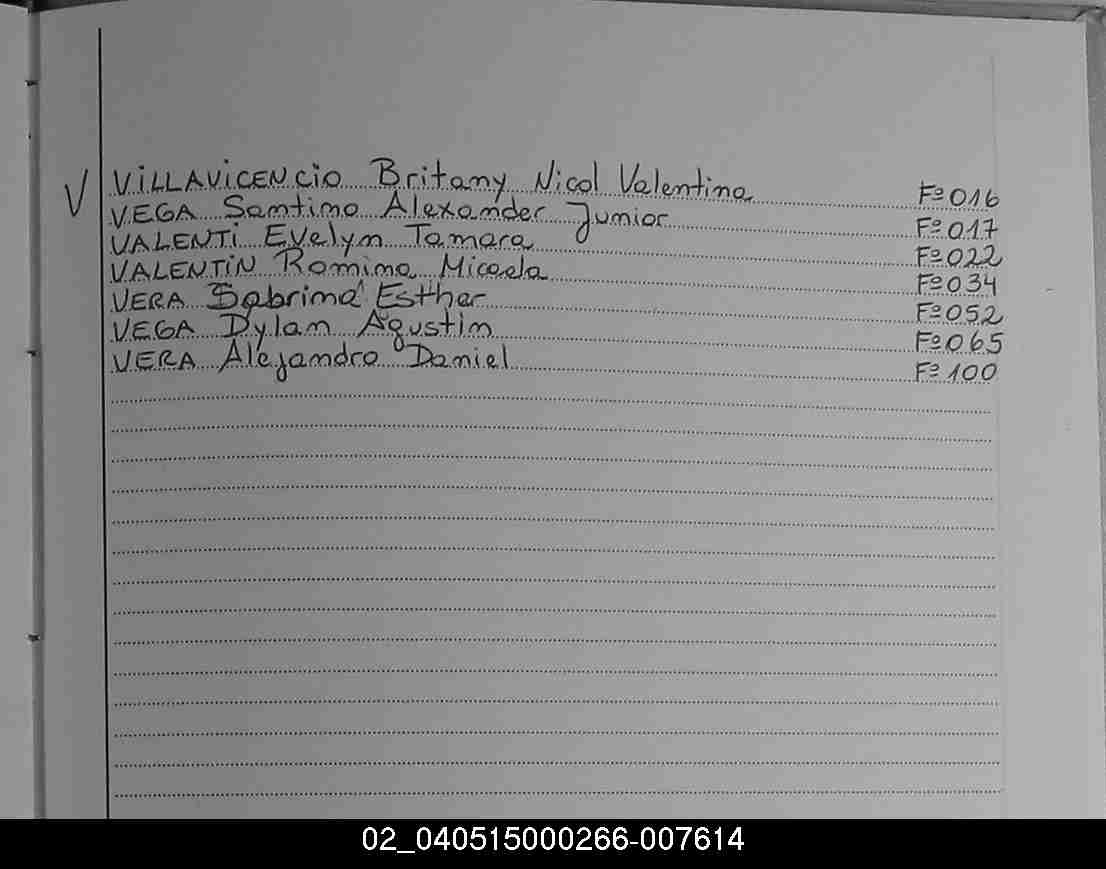 V
VILLAVICENCIO Britany Nicol Valentina Fº 016
VEGA Santino Alexander Junior Fº 017
VALENTI Evelyn Tamara Fº 022
VALENTIN Romina Micaela Fº 034
VERA Sabrina Esther Fº 052
VEGA Dylan Agustin Fº 065
VERA Alejandro Daniel Fº 100
02_040515000266-007614